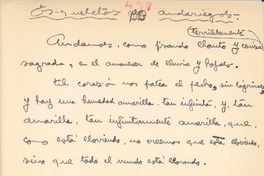 Esqueletos andariegos.
terriblemente
Andamos, como frando llanto y ceniza
sagrada, en el amanecer de lluvia y hojas.
El corazón nos patea el pecho, sin lágrimas
y hay una humedad amarilla, tan infinita, y, tan
amarilla, tan infinitamente amarilla, que
como está lloviendo, no creemos que está lloviendo,
sino que todo el mundo está llorando.